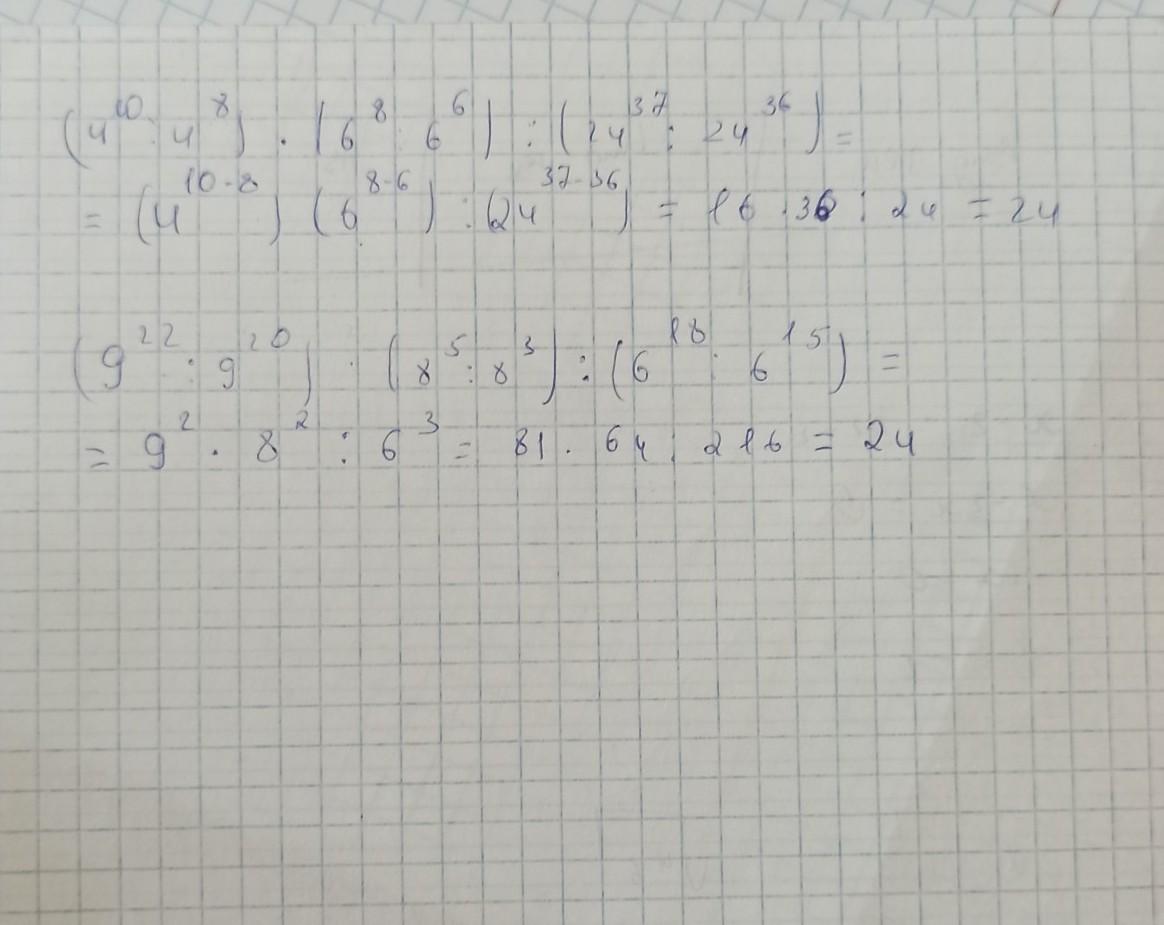 (4¹⁰ : 4⁸) · (6⁸ : 6⁶) : (24³⁷ : 24³⁶) =
= (4¹⁰⁻⁸) (6⁸⁻⁶) : (24³⁷⁻³⁶) = 16 · 36 : 24 = 24
(9²² : 9²⁰) · (8⁵ : 8³) : (6¹⁸ : 6¹⁵) =
= 9² · 8² : 6³ = 81 · 64 : 216 = 24